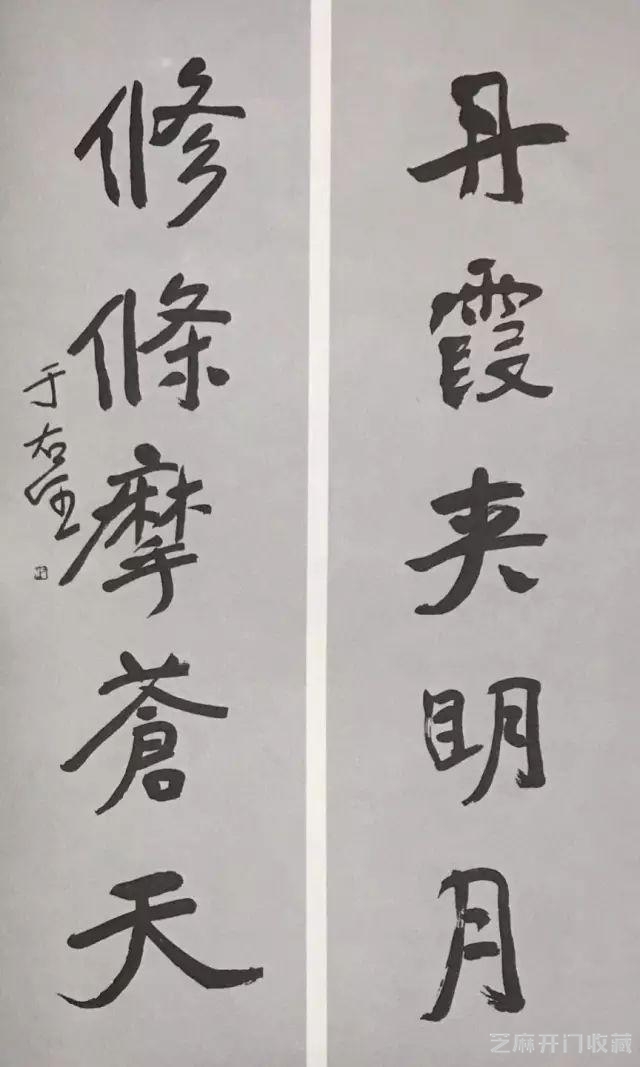 丹霞夹明月
修條摩蒼天
于右任
芝麻开门收藏